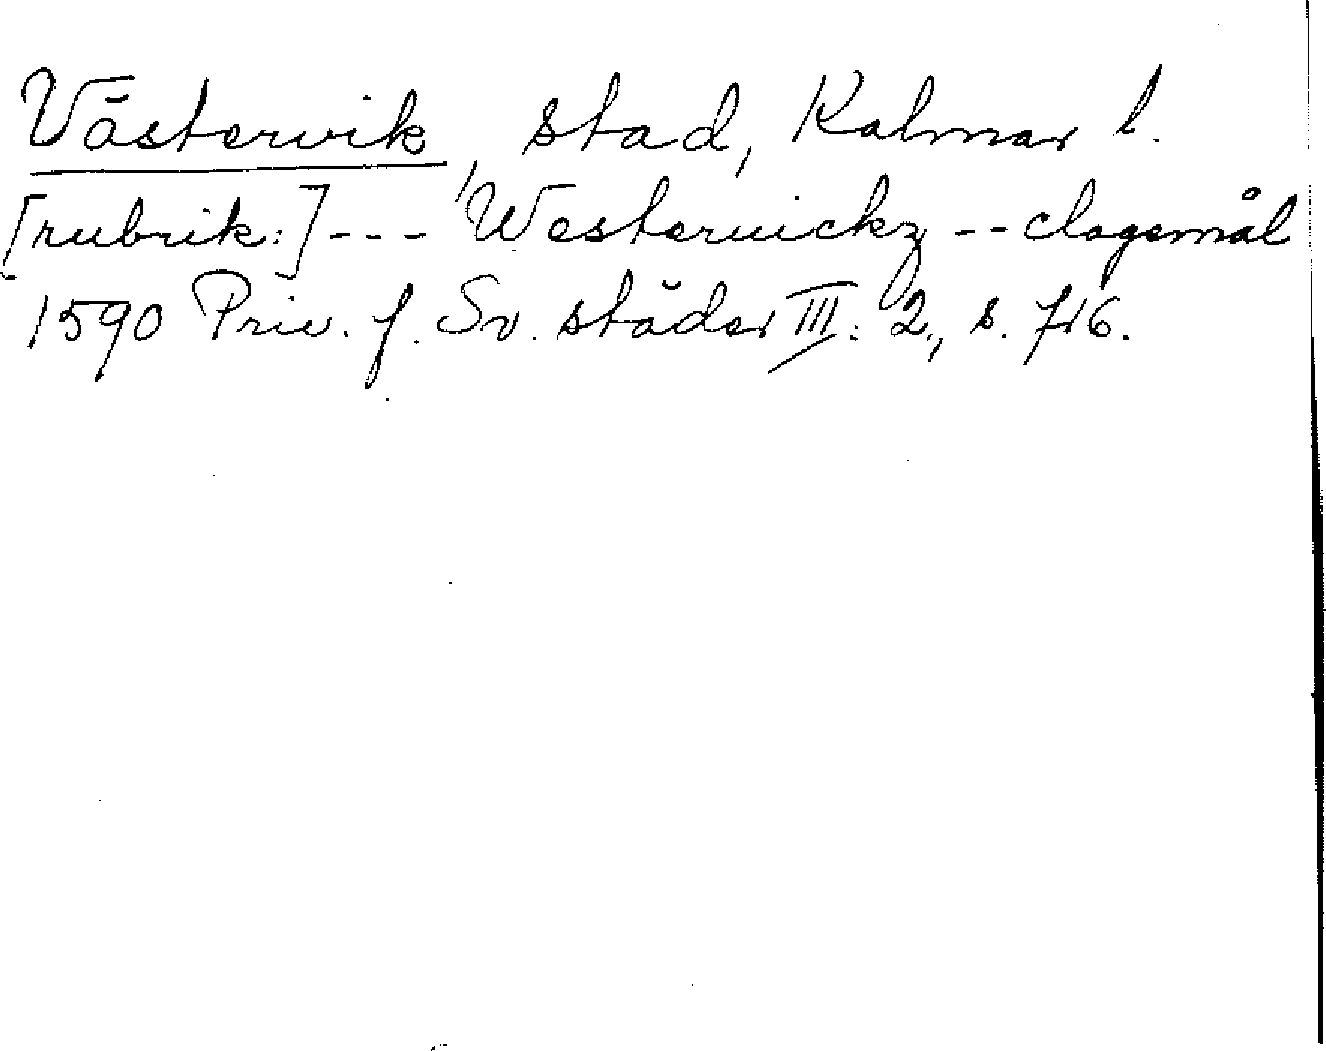 Västervik, stad, Kalmar l.
[rubrik:] --- Westeruickz -- clagemål
1590 Priv. f. Sv. städer III: 2, s. 716.